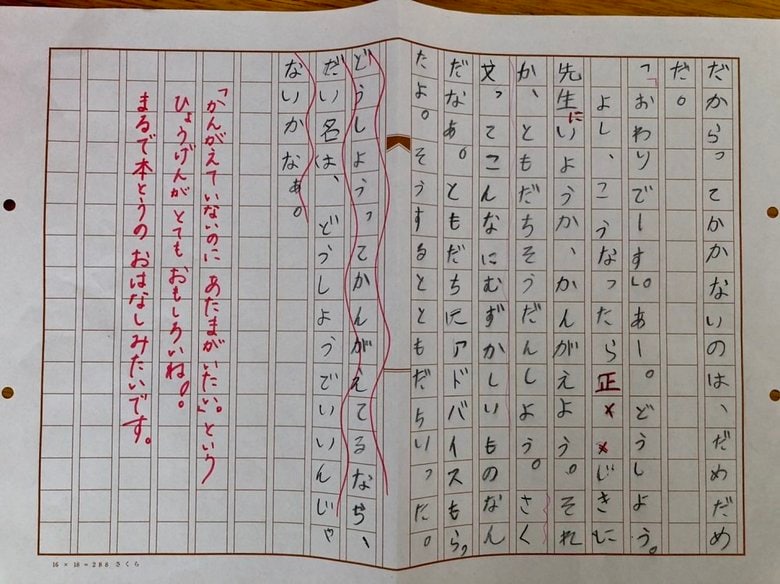 だからってかかないのは、だめだめ
だ。
「おわりでーす。」あー。どうしよう。
よし、こうなったら正××じきに
先生にいようか、かんがえよう。それ
か、ともだちそうだんしよう。さく
文ってこんなにむずかしいものなん
だなあ。ともだちにアドバイスもらっ
たよ。そうするとともだちいった。
どうしようってかんがえてるなぢ、
だい名は、どうしようでいいんじゃ
ないかなぁ。
「かんがえていないのに あたまがいたい。」という
ひょうげんが とても おもしろいね。
まるで本とうの おはなしみたいです。
16×18=288 さくら